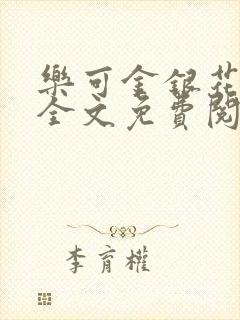 樂可金銀花
全文免費閱
李育權